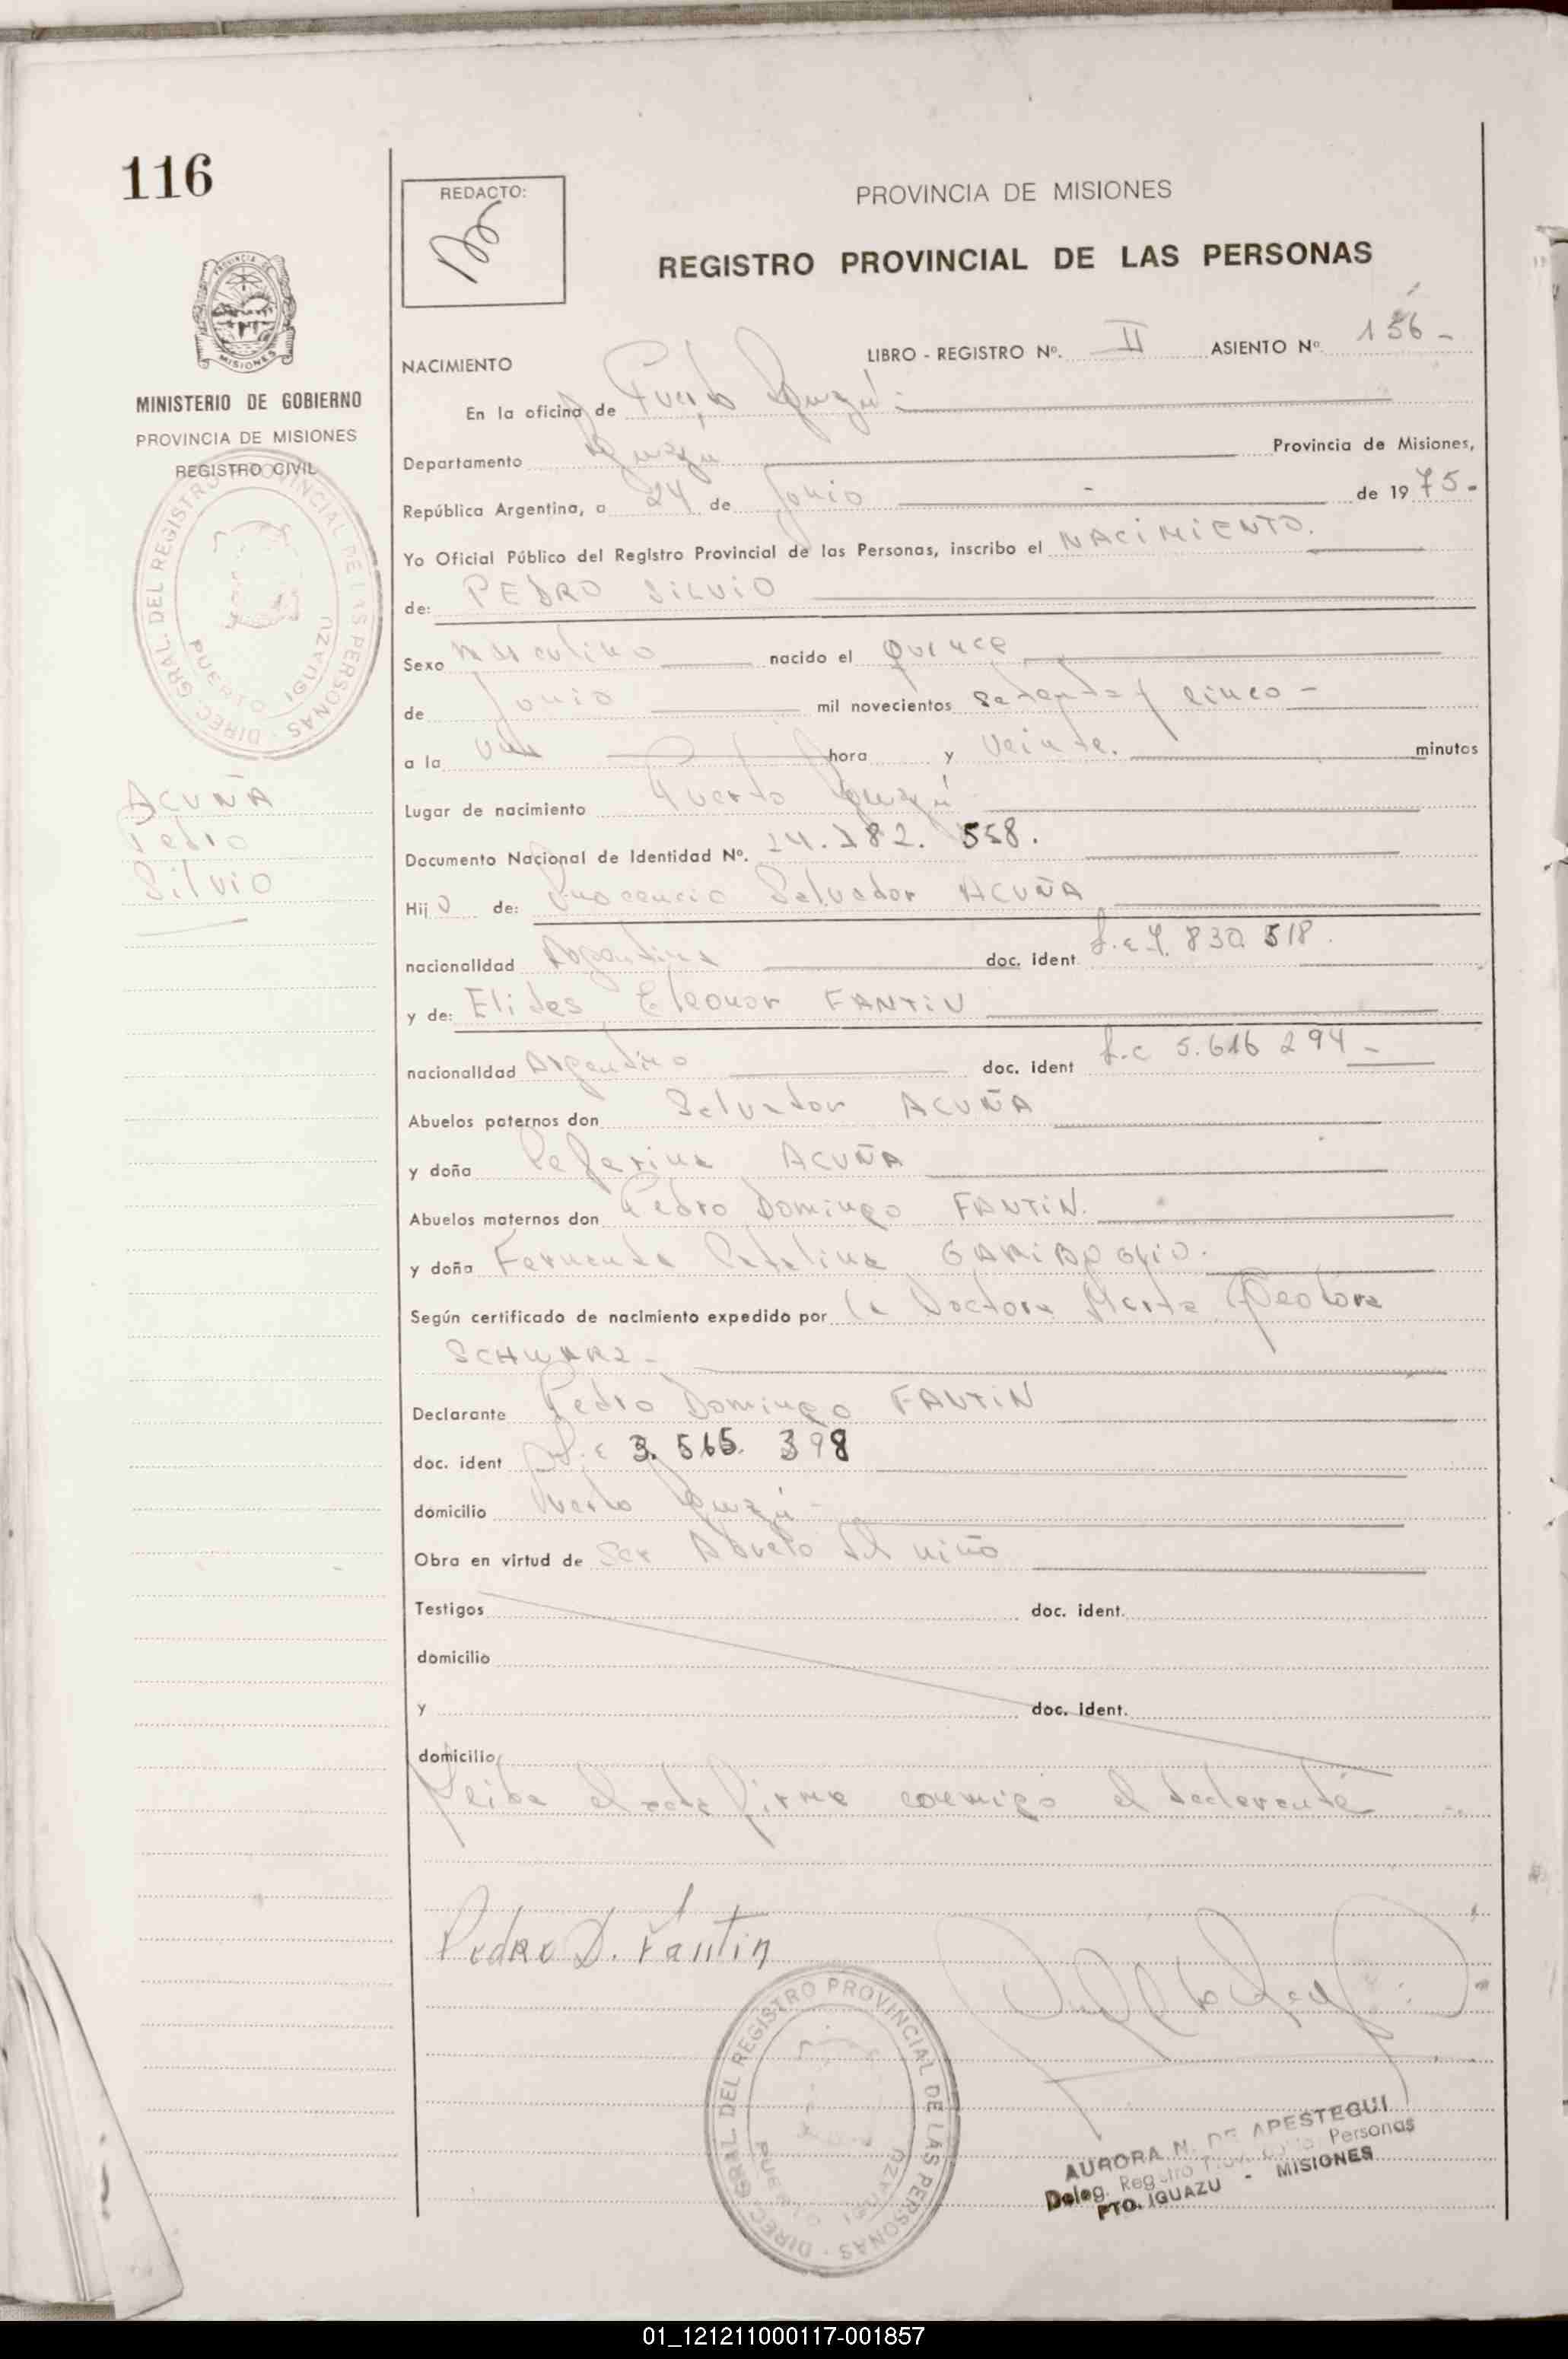 116
REDACTO:
PROVINCIA DE MISIONES
REGISTRO PROVINCIAL DE LAS PERSONAS
PROVINCIA DE
MISIONES
NACIMIENTO LIBRO - REGISTRO Nº. II ASIENTO Nº 156 -
MINISTERIO DE GOBIERNO
PROVINCIA DE MISIONES
REGISTRO CIVIL
En la oficina de Puerto Iguazú.-
Departamento Iguazu Provincia de Misiones,
República Argentina, a 24 de Junio de 1975.-
Yo Oficial Público del Registro Provincial de las Personas, inscribo el NACIMIENTO.
de: PEDRO SILVIO
Sexo masculino nacido el quince
de Junio mil novecientos setenta y cinco -
a la una hora y veinte. minutos
Lugar de nacimiento Puerto Iguazú
Documento Nacional de Identidad Nº. 558.
Hijo de: Inocencio Salvador ACUÑA
nacionalidad Argentina doc. ident 830 518.
y de: Elides Eleonor FANTIN
nacionalidad Argentina doc. ident L.C 5.616 294 -
Abuelos paternos don Salvador ACUÑA
y doña Ceferina ACUÑA
Abuelos maternos don Pedro Domingo FANTIN.
y doña Fernanda Catalina
Según certificado de nacimiento expedido por la Doctora Marta Teodora
SCHWARZ -
Declarante Pedro Domingo FANTIN
doc. ident 3. 565. 398
domicilio Puerto Iguazú -
Obra en virtud de ser Abuelo del niño
Testigos doc. ident.
domicilio
y doc. ident.
domicilio
Leida el acta firma conmigo el declarante
Pedro D. Fantin
ACUÑA
Pedro
Silvio
DIREC. GRAL. DEL REGISTRO PROVINCIAL DE LAS PERSONAS
PUERTO IGUAZU
DIREC. GRAL. DEL REGISTRO PROVINCIAL DE LAS PERSONAS
PUERTO IGUAZU
AURORA N. DE APESTEGUI
Deleg. Registro Personas
PTO. IGUAZU - MISIONES
01_121211000117-001857